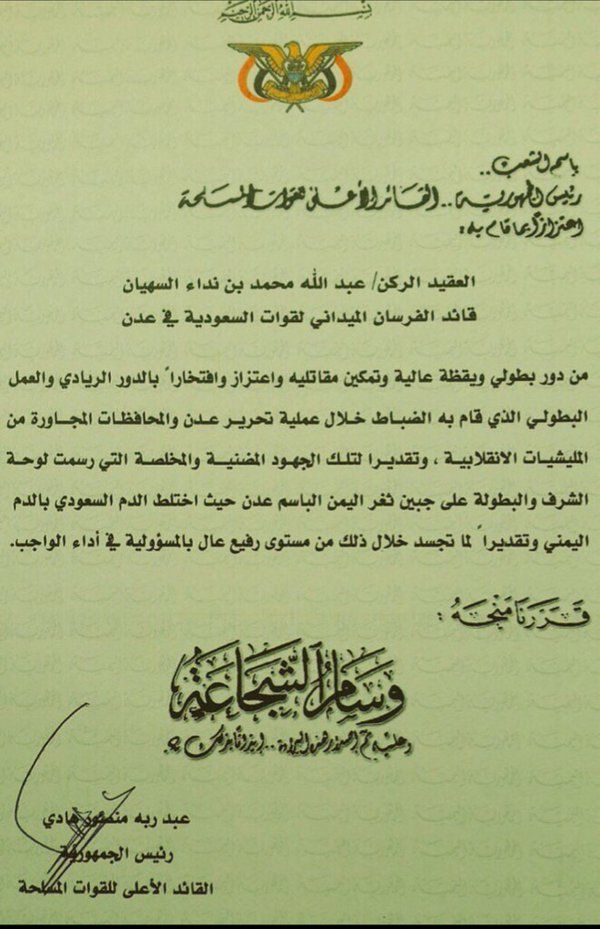 بسم الله الرحمن الرحيم
باسم الشعب..
رئيس الجمهورية.. القائد الأعلى للقوات المسلحة
اعتزازاً بما قام به:
العقيد الركن/ عبد الله محمد بن نداء السهيان
قائد الفرسان الميداني لقوات السعودية في عدن
من دور بطولي ويقظة عالية وتمكين مقاتليه واعتزاز وافتخاراً بالدور الريادي والعمل
البطولي الذي قام به الضباط خلال عملية تحرير عدن والمحافظات المجاورة من
المليشيات الانقلابية ، وتقديرا لتلك الجهود المضنية والمخلصة التي رسمت لوحة
الشرف والبطولة على جبين ثغر اليمن الباسم عدن حيث اختلط الدم السعودي بالدم
اليمني وتقديراً لما تجسد خلال ذلك من مستوى رفيع عال بالمسؤولية في أداء الواجب.
قَرَرنَا مَنْحَهُ :
وسام الشجاعة
وعليه تم إصدار هذه البراءة.. إيذاناً بذلك
عبد ربه منصور هادي
رئيس الجمهورية
القائد الأعلى للقوات المسلحة